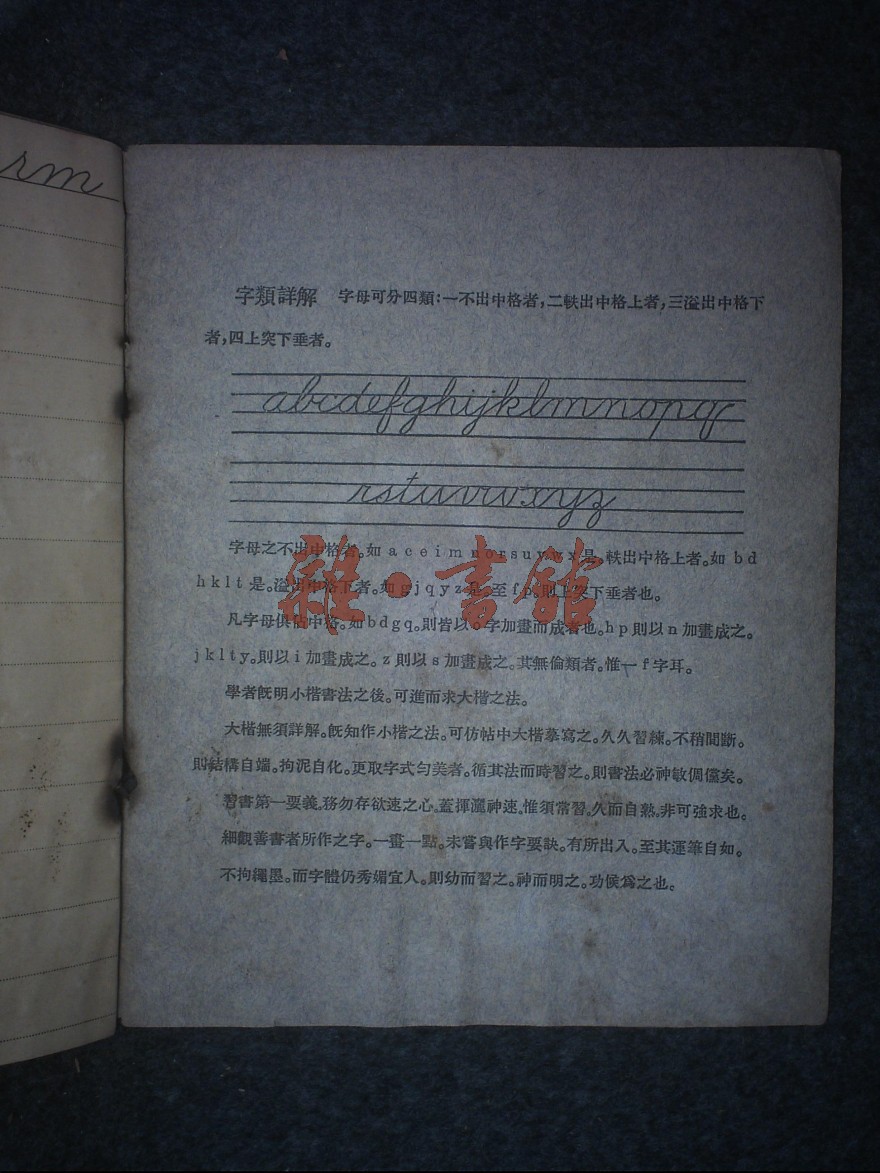 rm
字類詳解 字母可分四類:一不出中格者,二軼出中格上者,三溢出中格下
者,四上突下垂者。
abcdefghijklmnopq
rstuvwxyz
字母之不出中格者。如 a c e i m n o r s u v w x 是。軼出中格上者。如 b d
h k l t 是。溢出中格下者。如 g j q y z 是。至 f p。則上突下垂者也。
雜·書館
凡字母俱佔中格。如 b d g q。則皆以 o 字加畫而成者也。h p 則以 n 加畫成之。
j k l t y。則以 i 加畫成之。z 則以 s 加畫成之。其無倫類者。惟一 f 字耳。
學者旣明小楷書法之後。可進而求大楷之法。
大楷無須詳解。旣知作小楷之法。可仿帖中大楷摹寫之。久久習練。不稍間斷。
則結構自端。拘泥自化。更取字式勻美者。循其法而時習之。則書法必神敏倜儻矣。
習書第一要義。務勿存欲速之心。蓋揮灑神速。惟須常習。久而自熟。非可強求也。
細觀善書者所作之字。一畫一點。未嘗與作字要訣。有所出入。至其運筆自如。
不拘繩墨。而字體仍秀媚宜人。則幼而習之。神而明之。功候爲之也。